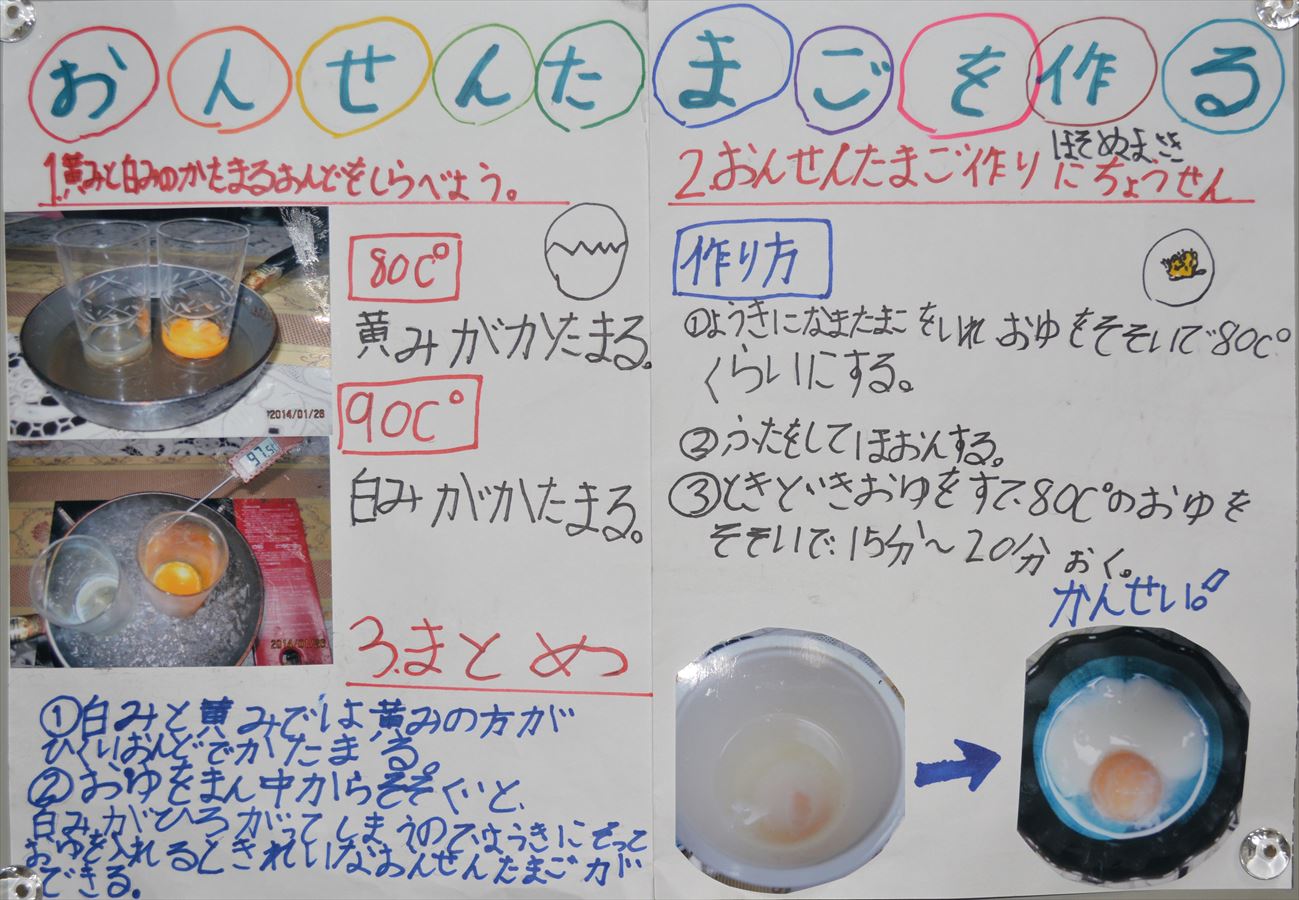 おんせんたまごを作る
ほそぬままさき
1.黄みと白みのかたまるおんどをしらべよう。
80C°
黄みがかたまる。
90C°
白みがかたまる。
2014/01/26
97.5
3.まとめ
①白みと黄みでは黄みの方が
ひくいおんどでかたまる。
②おゆをまん中からそそぐいと、
白みがひろがってしまうのでようきにそって
おゆを入れるときれいなおんせんたまごカが
できる。
2.おんせんたまご作りにちょうせん
作り方
①ようきになまたまごをいれおゆをそそいで80C°
くらいにする。
②ふたをしてほおんする。
③ときどきおゆをすて、80C°のおゆを
そそいで、15分〜20分おく。
かんせい。